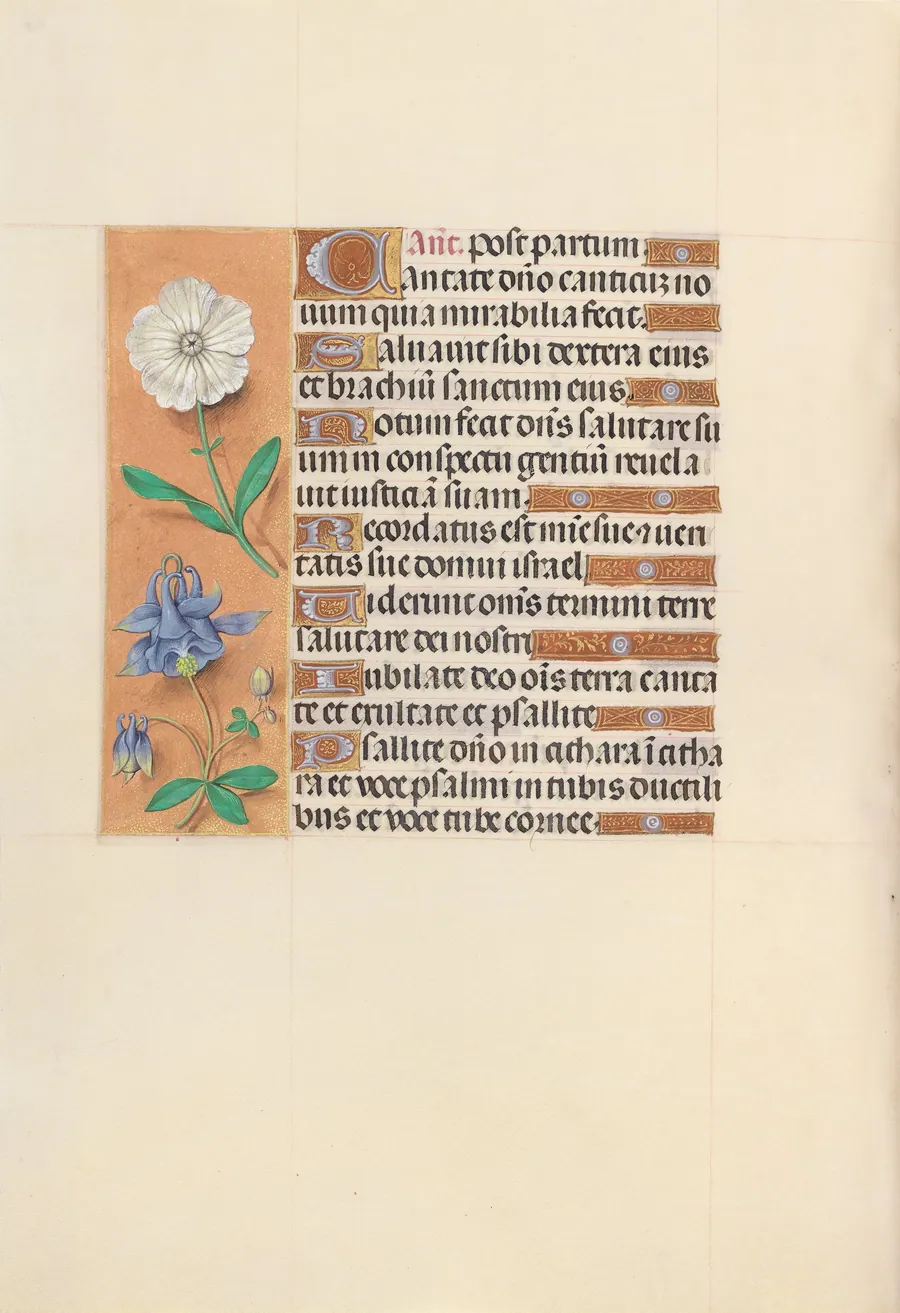 Añt. post partum
Cantate dño canticuʒ no
uum quia mirabilia fecit.
Saluauit sibi dextera eius
et brachiū sanctum eius
Notum fecit dñs salutare su
um in conspectu gentiū reuela
uit iusticiā suam
Recordatus est mīe sue ⁊ ueri
tatis sue domui israel
Uiderunt om̄s termini terre
salutare dei nostri
Iubilate deo oīs terra canta
te et exultate et psallite
Psallite dño in cithara ī citha
ra et voce psalmi in tubis ductili
bus et voce tube cornee